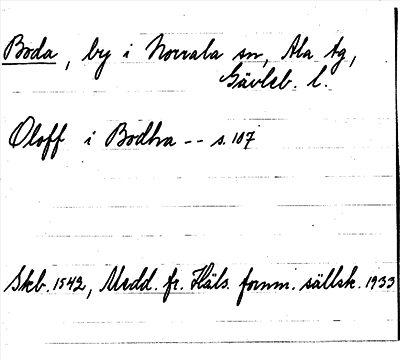 Boda, by i Norrala sn, Ala tg,
Gävleb. l.
Oloff i Bodha -- s. 107
Skb. 1542, Medd. fr. Häls. fornm. sällsk. 1933